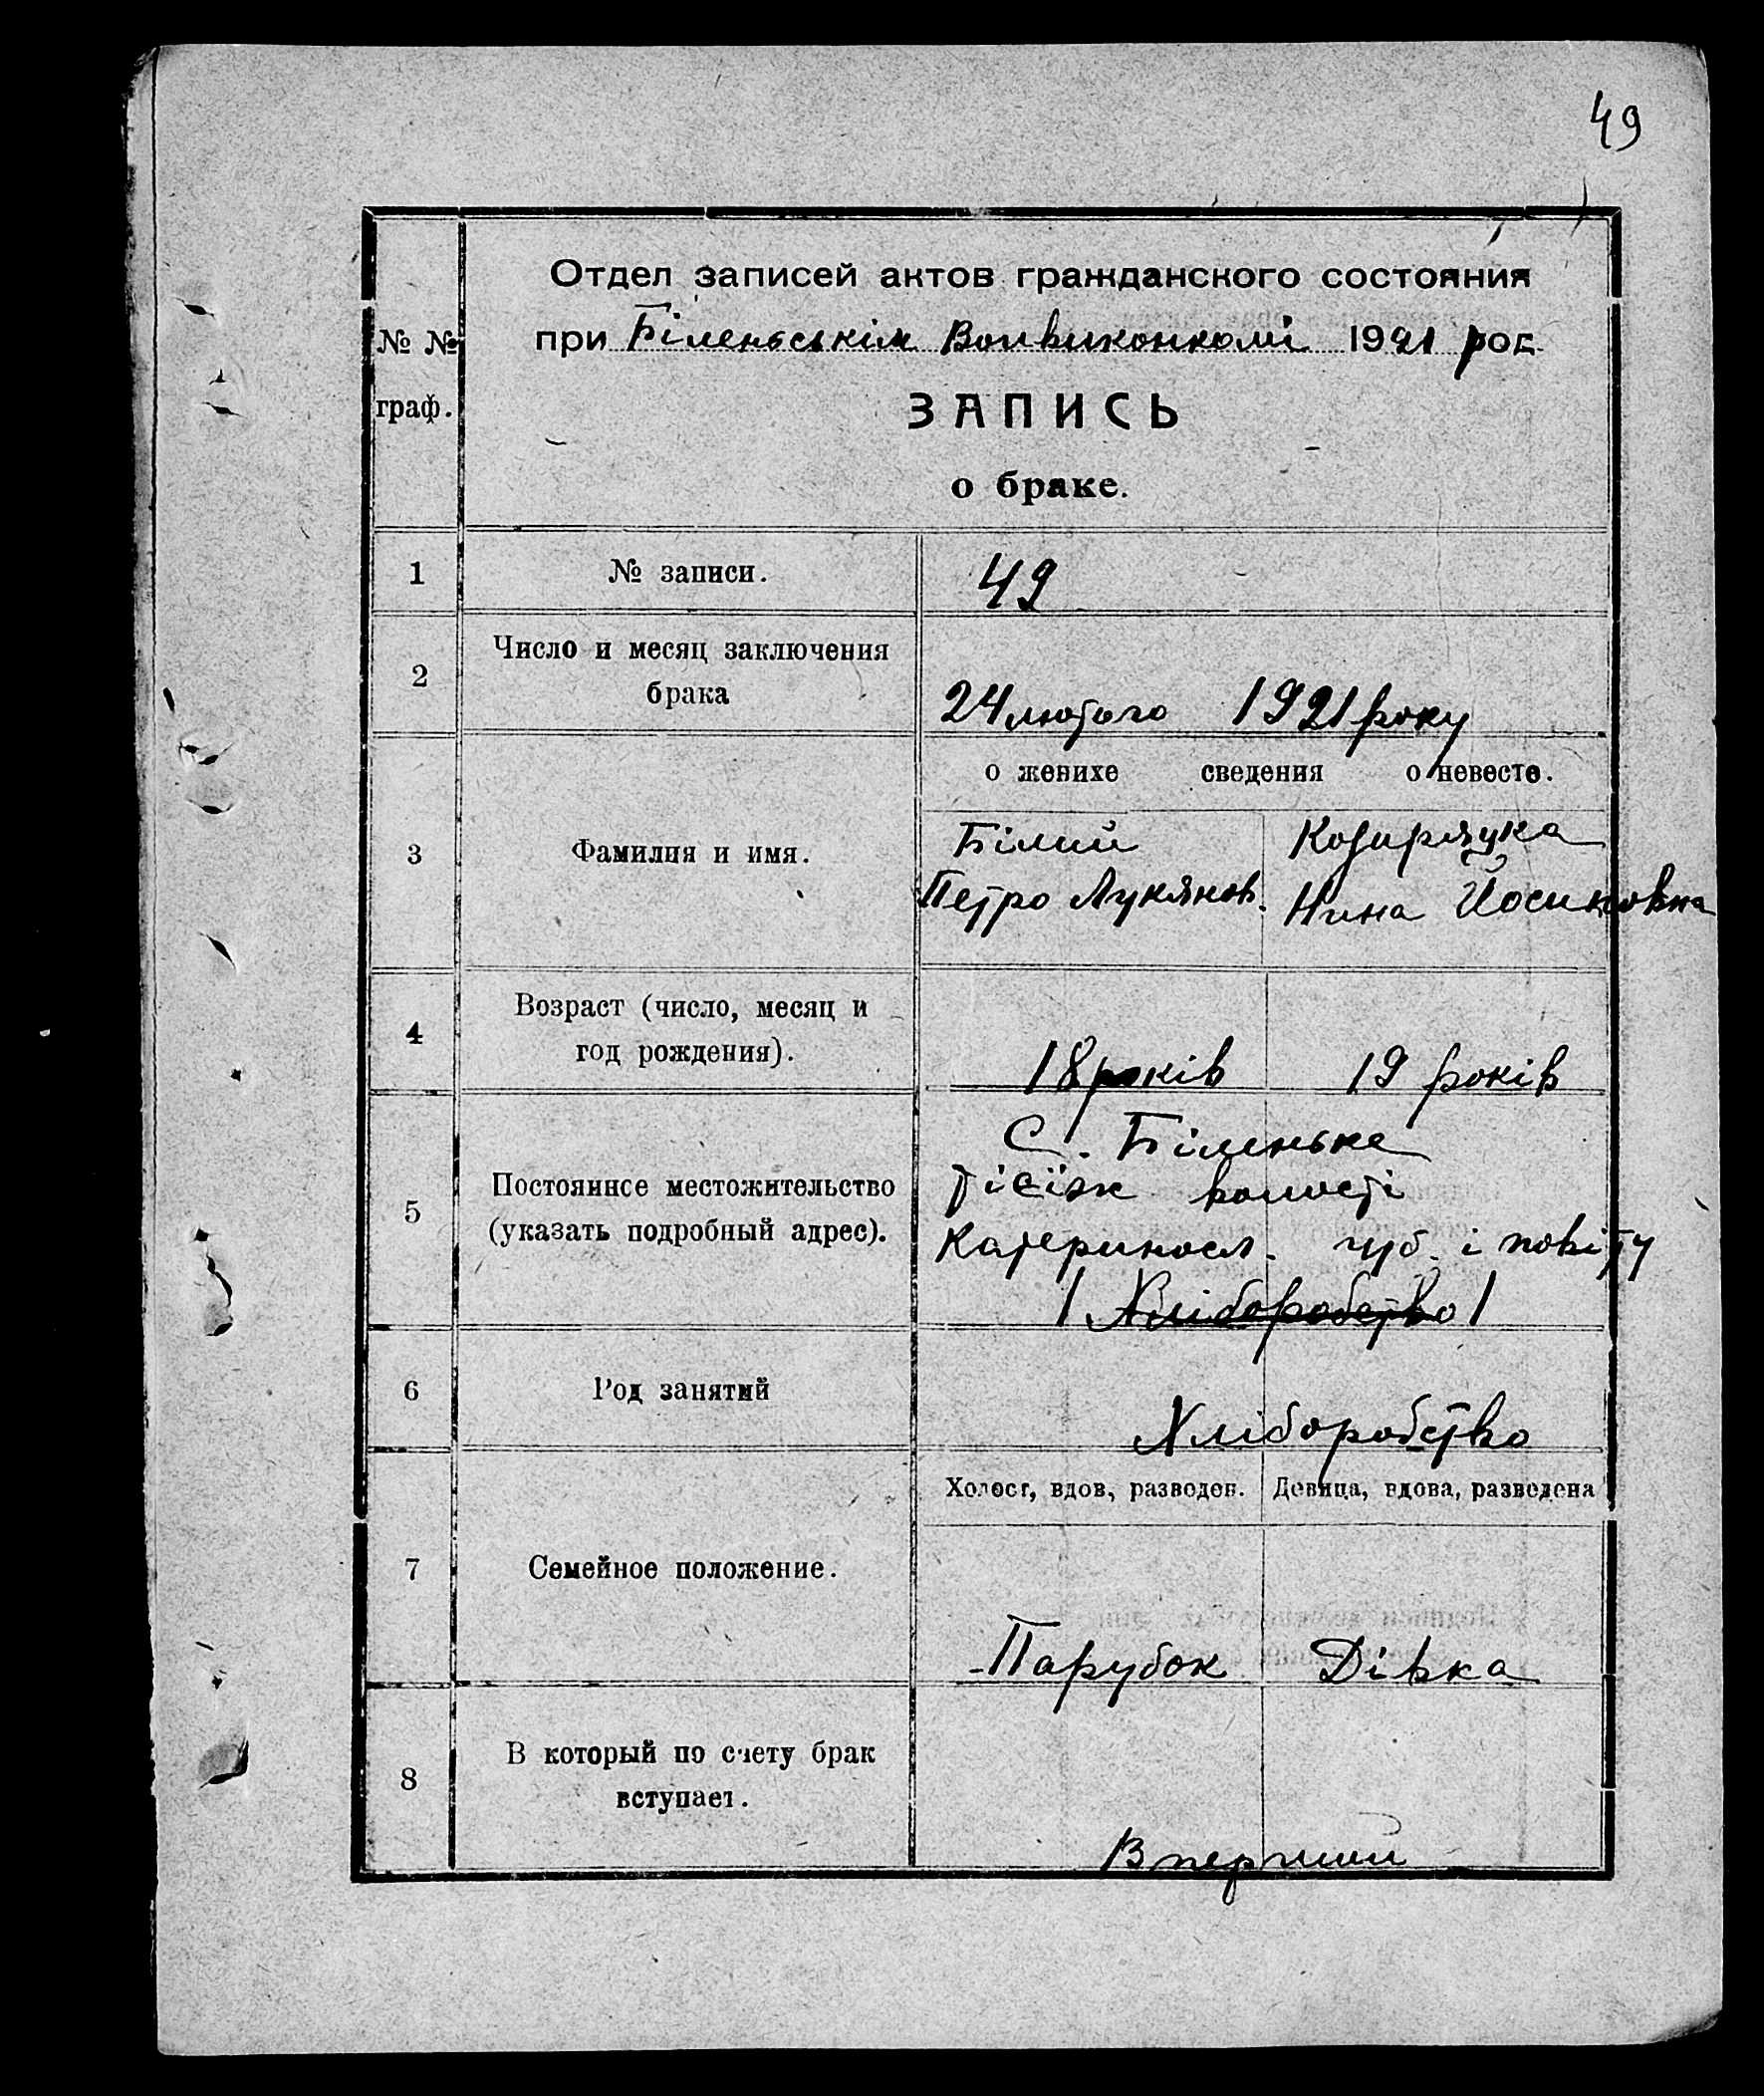 49
Отдел записей актов гражданского состояния
при Біленьськім Волвиконкомі 1921 рос.
№ №
граф.
ЗАПИСЬ
о браке.
1 № записи. 49
2 Число и месяц заключения
брака
24 лютого 1921 року
о женихе сведения о невесте.
3 Фамилия и имя.
Білий
Петро Лукянов.
Козиряцка
Нина Йосиповна
4 Возраст (число, месяц и
год рождения).
18 років 19 років
5 Постоянное местожительство
(указать подробный адрес).
С. Біленьке
тієїж волості
Катериносл. губ. і повіту
/ Хліборобство /
6 Род занятий
Хліборобство
Холост, вдов, разведен. Девица, вдова, разведена
7 Семейное положение.
Парубок Дівка
8 В который по счету брак
вступает.
Вперший